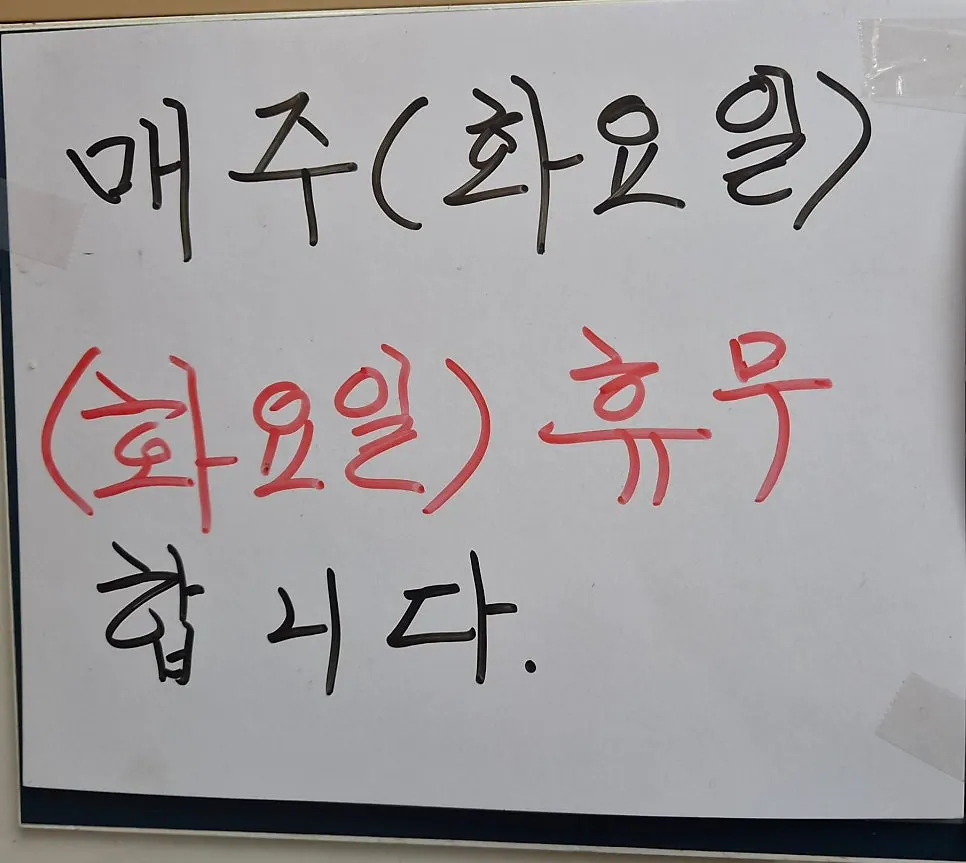 매주(화요일)
(화요일) 휴무
합니다.